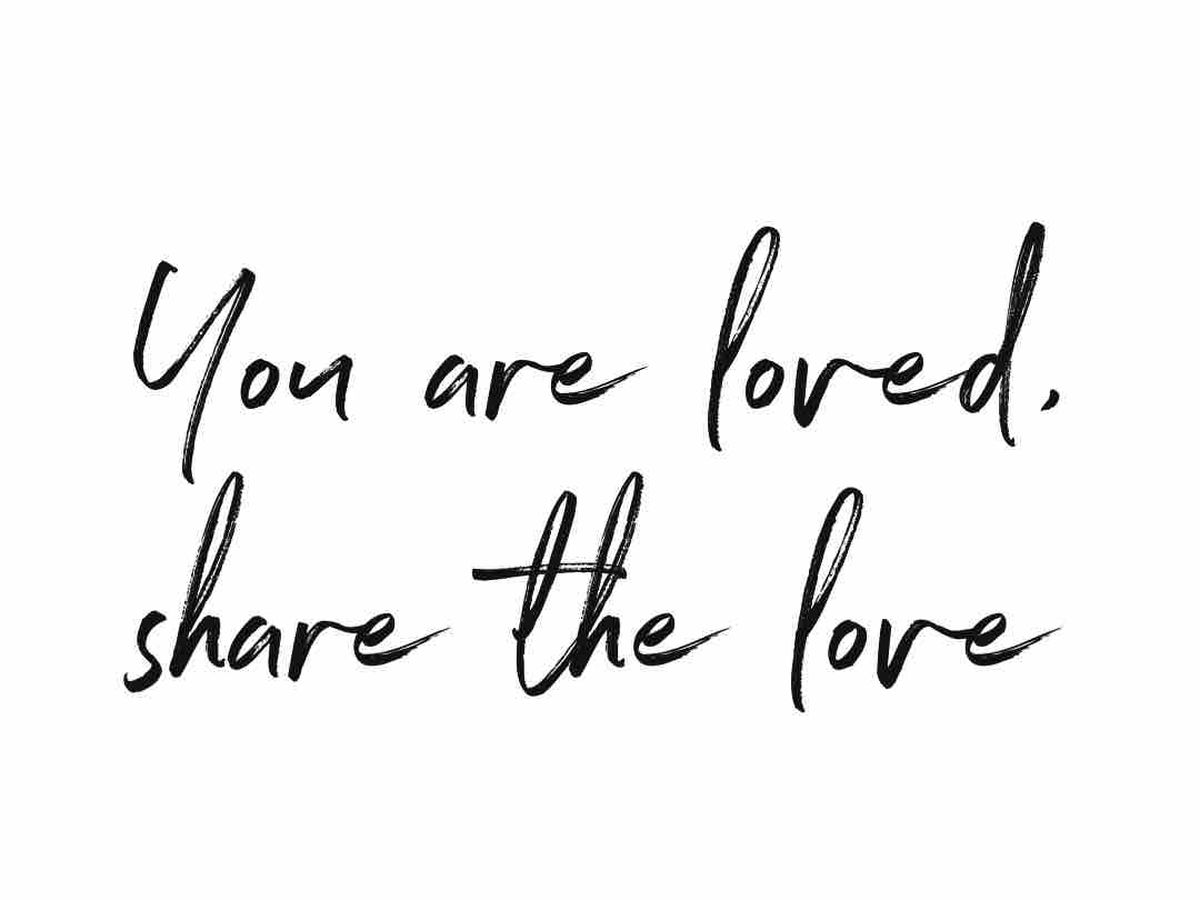 You are loved,
share the love